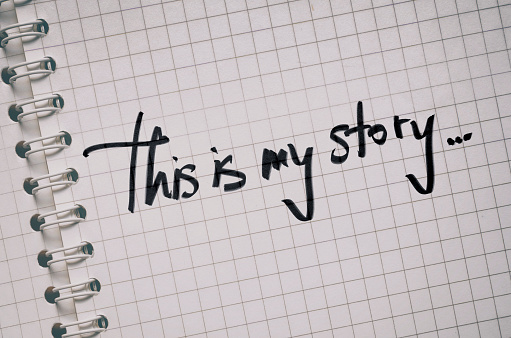 This is my story...